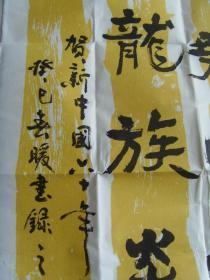 龍族
賀新中國六十年
癸巳春暖書錄之